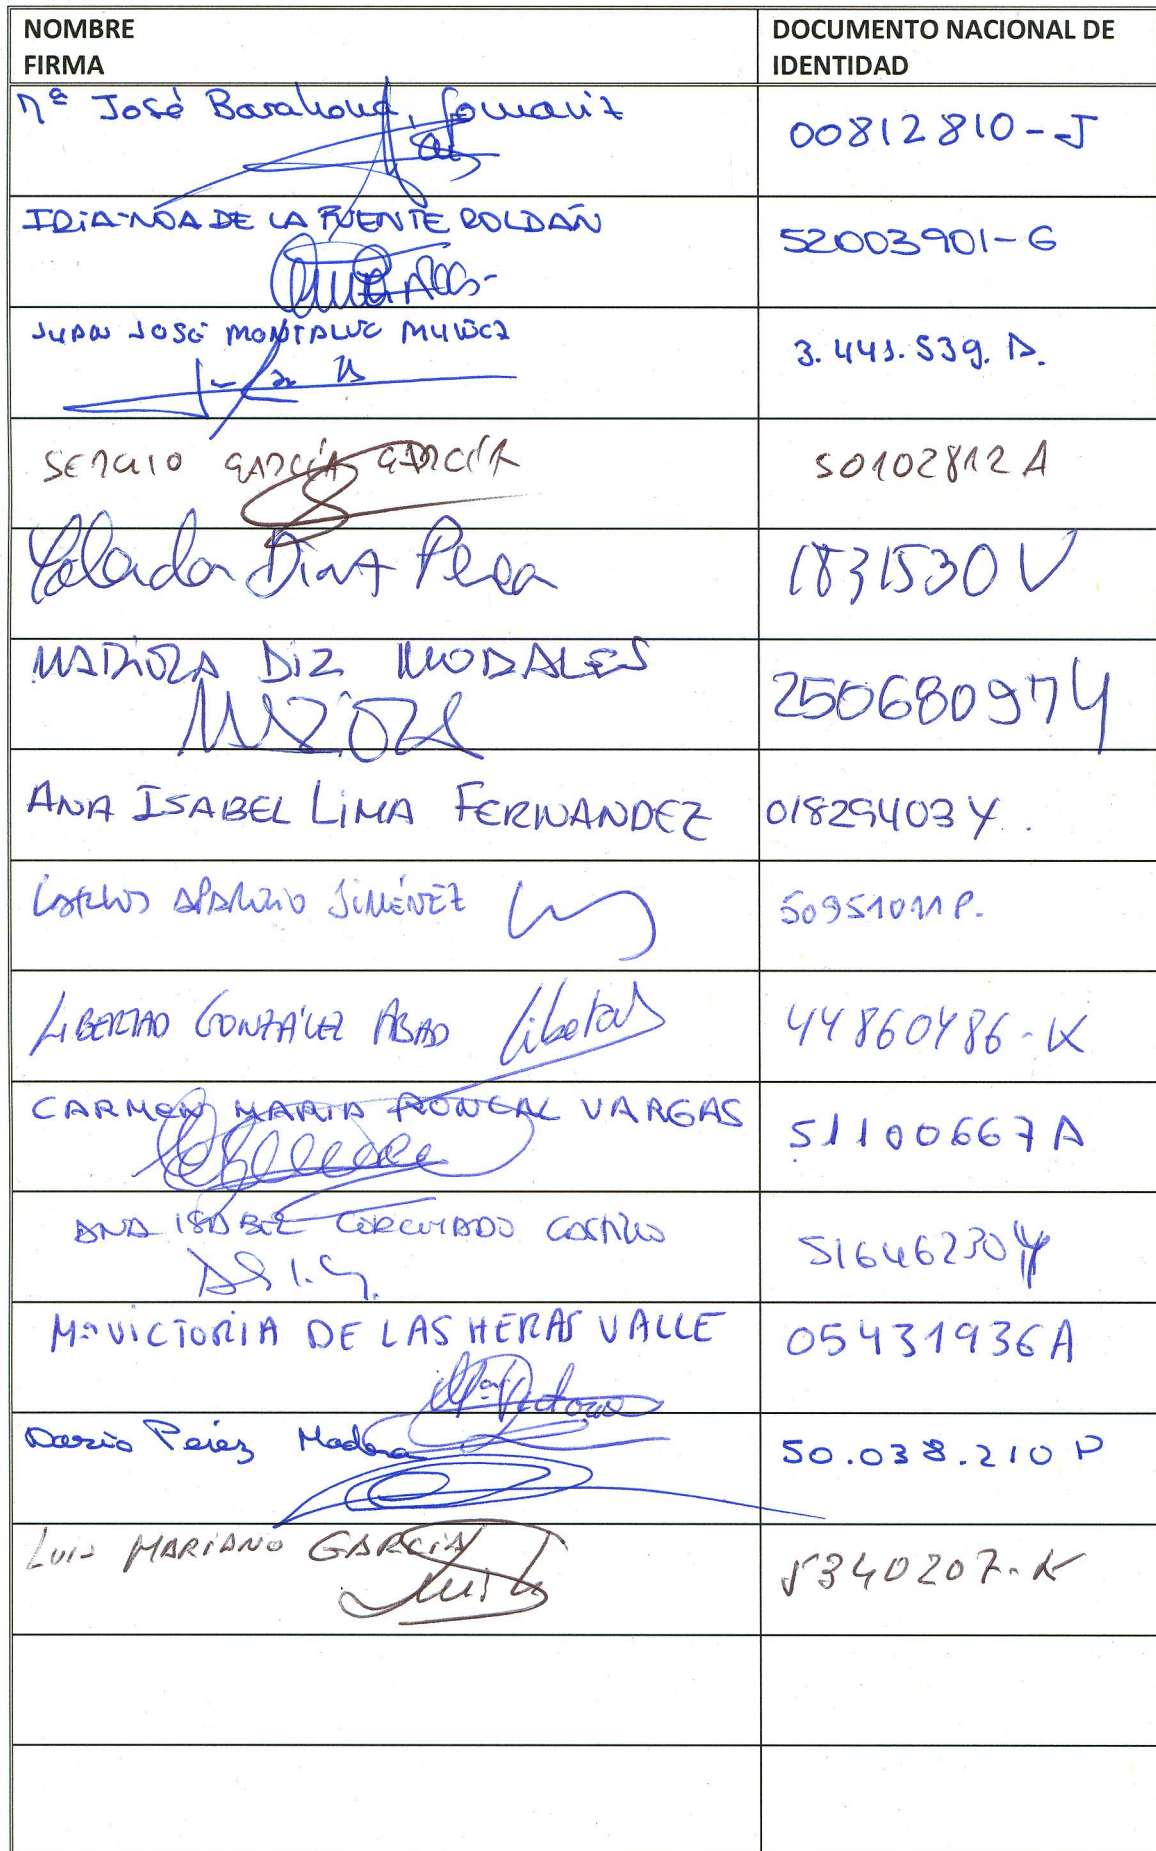 NOMBRE
FIRMA
DOCUMENTO NACIONAL DE
IDENTIDAD
Mª José Barahona, Gomariz
00812810-J
IRIA-NOA DE LA FUENTE ROLDÁN
52003901-G
JUAN JOSÉ MONTALVO MUÑOZ
3.441.539. D.
SERGIO GARCÍA GARCÍA
50102812A
Díaz Perea
1831530V
MARIOLA DIZ MORALES
MARIOLA
25068097Y
ANA ISABEL LIMA FERNANDEZ
01829403Y.
CARLOS APARICIO JIMÉNEZ
50951011P.
LIBERTAD GONZÁLEZ ABAD Libertad
44860486-K
CARMEN MARIA RONCAL VARGAS
51100667A
ANA ISABEL CORCHADO CASTILLO
51646230Y
Mª VICTORIA DE LAS HERAS VALLE
05431936A
Mª Victoria
Darío Pérez Madera
50.038.210 P
LUIS MARIANO GARCÍA
Luis
5340207-K